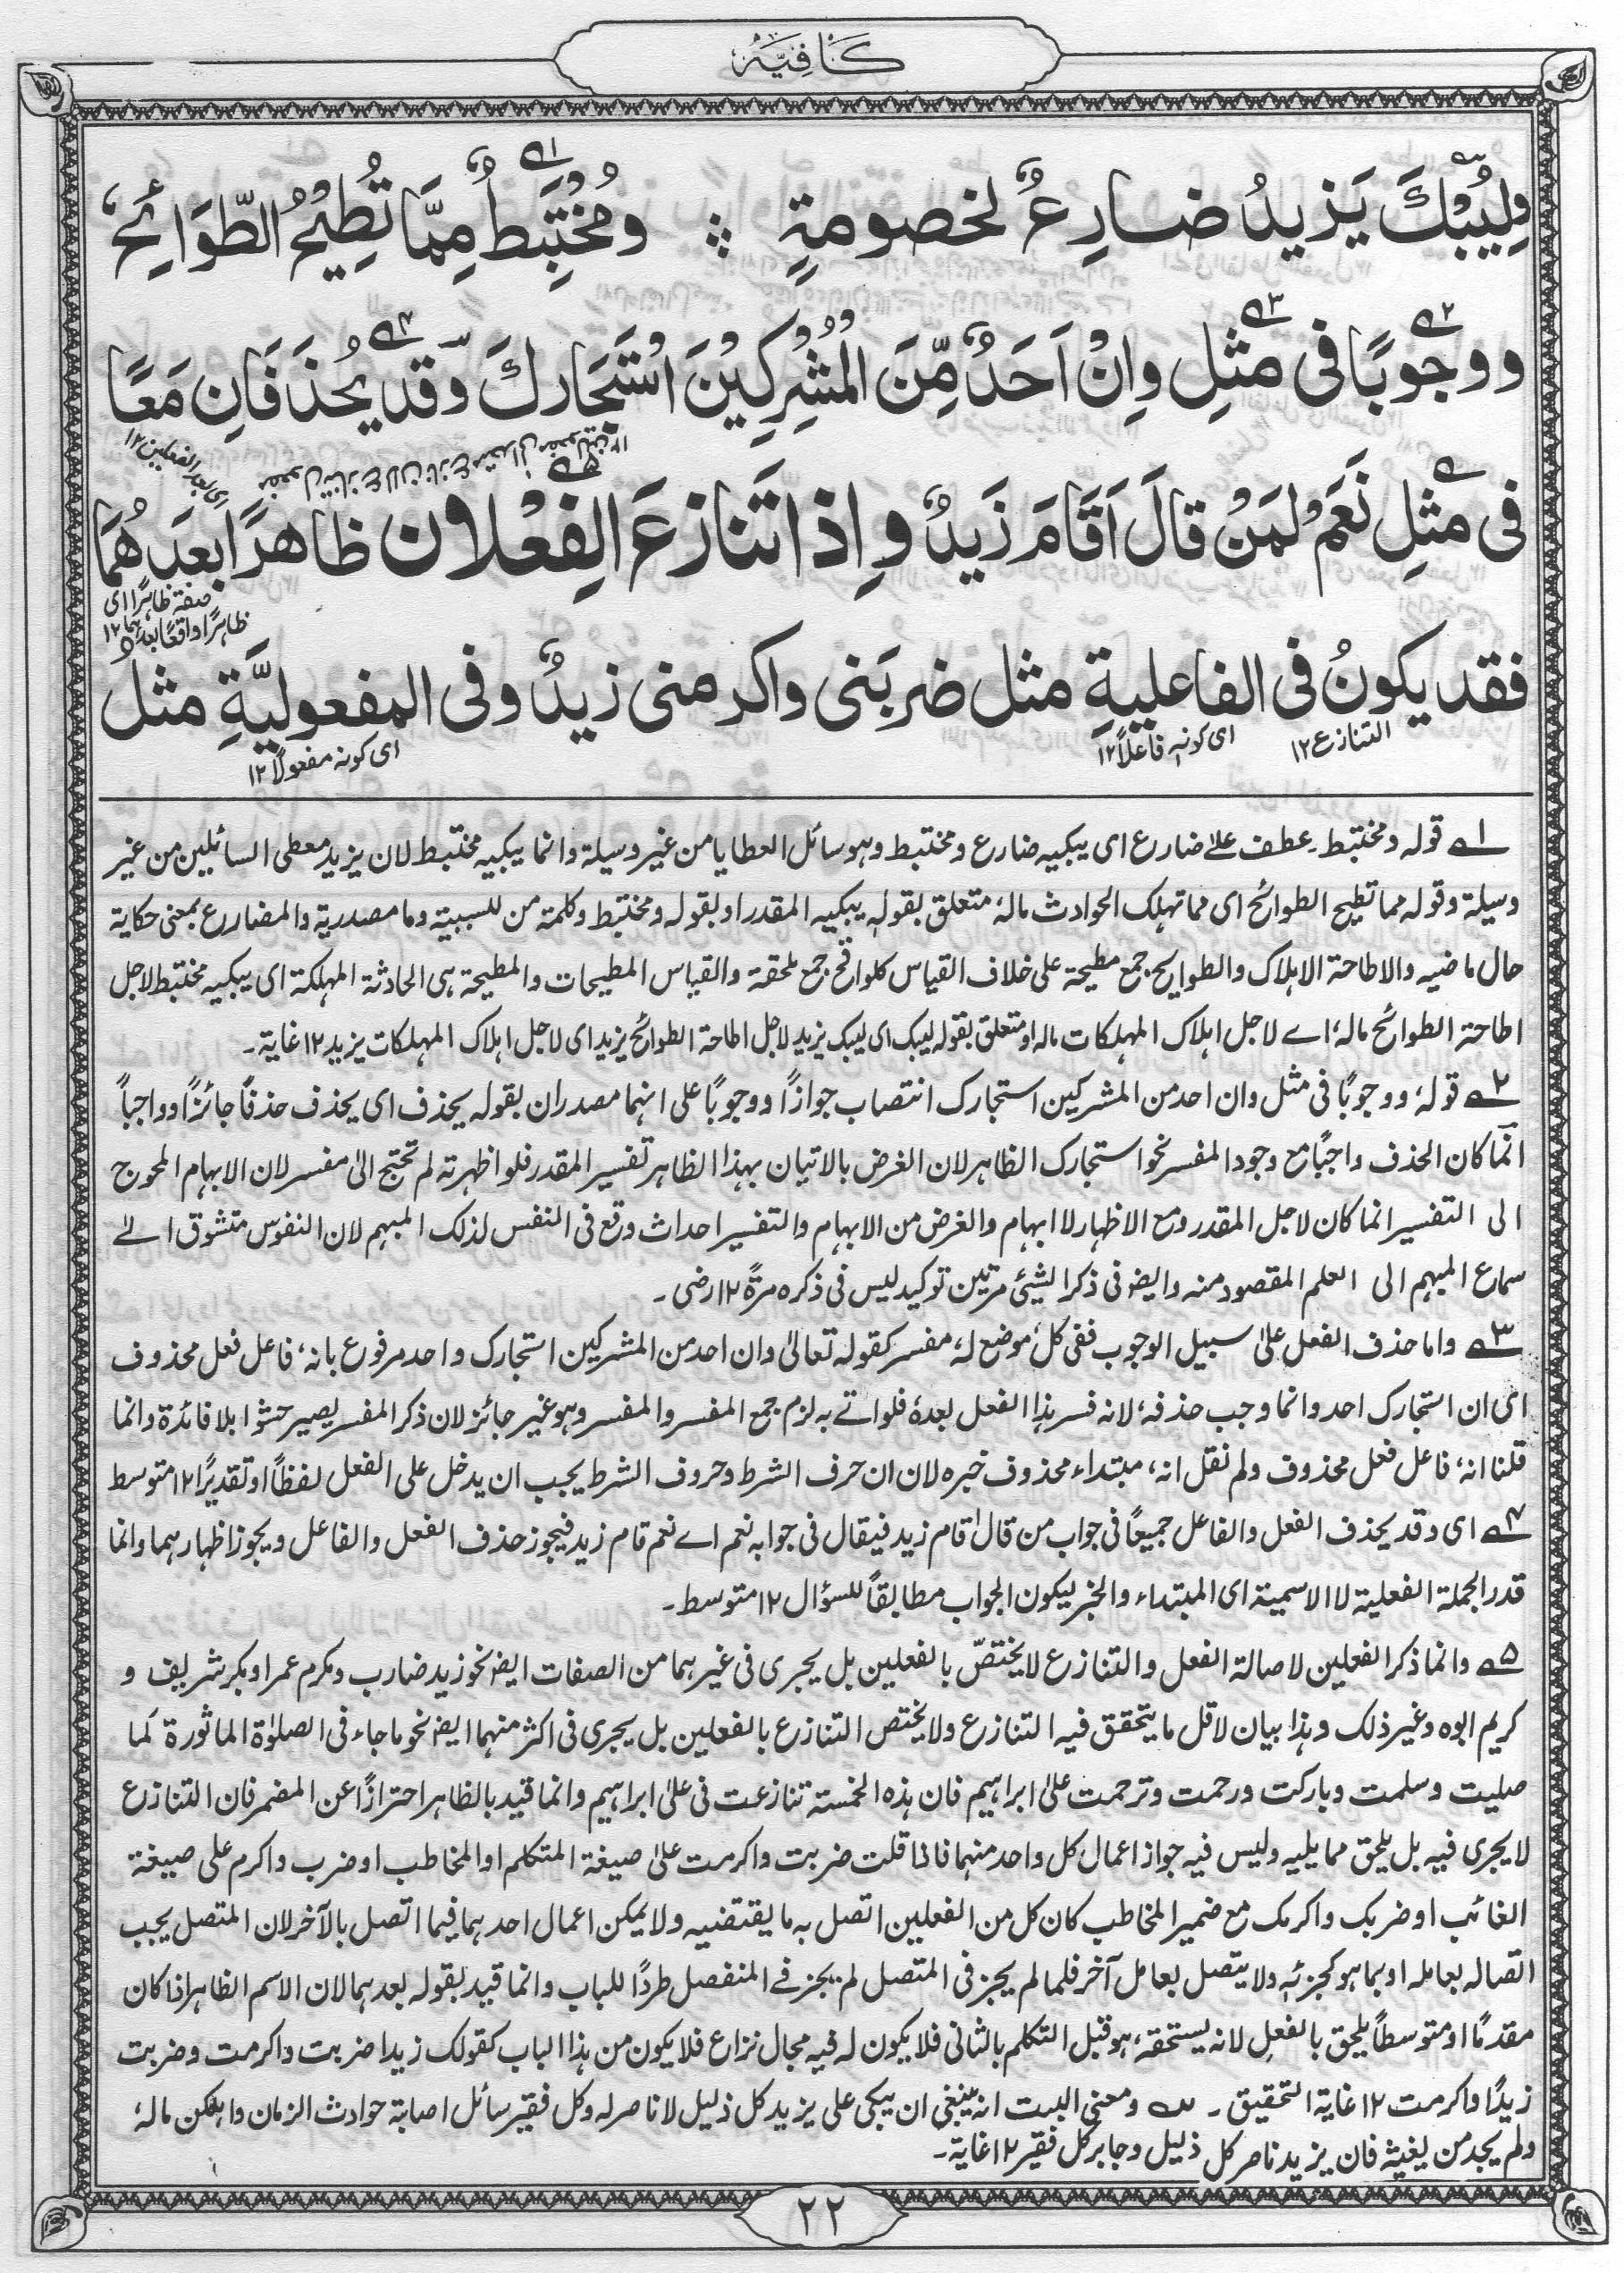 كَافِيَه
وِلِيُبْكَ يَزيدُ ضارِعٌ لخصومةٍ ∴ ومُخْتَبِطٌ مِمَّا تُطِيْحُ الطَّوَائِحُ
ووجوبًا فى مثلِ وإنْ اَحَدٌ مِّنَ الْمُشْرِكِيْنَ اسْتَجَارَكَ وّقد يُحْذَفَانِ مَعًا
اى بعد الفعلين ١٢
فى مثلِ نَعَمْ لمَنْ قالَ اَقَامَ زَيدٌ وإذا تَنازعَ الفِعْلانِ ظاهرًا بعدَهُمَا
صفة ظاہرًا اى
ظاہرًا واقعًا بعدہما ١٢
فقد يكونُ فى الفاعليةِ مثل ضربَنى واكرمنى زيدٌ وفى المفعوليَّةِ مثل
التنازع ١٢ اى كونہ فاعلاً ١٢ اى كونہ مفعولاً ١٢
١ قولہ ومختبط۔ عطف علے ضارع اى يبكيہ ضارع ومختبط وہو سائل العطايا من غير وسيلة وانما يبكيہ مختبط لان يزيد معطى السائلين من غير
وسيلة وقولہ مما تطيح الطوائح اى مما تہلک الحوادث مالہ، متعلق بقولہ يبكيہ المقدر او بقولہ ومختبط وكلمة من للسببية وما مصدرية والمضارع بمعنى حكاية
حال ماضيہ والاطاحة الاہلاک والطوايح جمع مطيحة على خلاف القياس كلواقح جمع ملحقة والقياس المطيحات والمطيحة ہى الحادثة المہلكة اى يبكيہ مختبط لاجل
اطاحة الطوائح مالہ، اے لاجل اہلاک المہلكات مالہ او متعلق بقولہ ليبک اى ليبک يزيد لاجل اطاحة الطوائح يزيد اى لاجل اہلاک المہلكات يزيد ١٢ غاية۔
٢ قولہ، ووجوبًا فى مثل وان احد من المشركين استجارک انتصاب جوازاً ووجوبًا على انہما مصدران بقولہ يحذف اى يحذف حذفاً جائزاً او واجباً
انما كان الحذف واجبًا مع وجود المفسر نحو استجارک الظاہر لان الغرض بالاتيان بہذا الظاہر تفسير المقدر فلو اظہرتہ لم تحتج الى مفسر لان الابہام المحوج
الى التفسير انما كان لاجل المقدر ومع الاظہار لا ابہام والغرض من الابہام والتفسير احداث وقع فى النفس لذلک المبہم لان النفوس متشوق الے
سماع المبہم الى العلم المقصود منہ وايضا فى ذكر الشيئ مرتين توكيد ليس فى ذكره مرةً ١٢ رضى۔
٣ واما حذف الفعل علىٰ سبيل الوجوب ففى كل موضع لہ، مفسر كقولہ تعالىٰ وان احد من المشركين استجارک واحد مرفوع بانہ، فاعل فعل محذوف
اى ان استجارک احد وانما وجب حذفہ، لانہ فسر ہذا الفعل بعدہٗ فلو اتے بہ لزم جمع المفسر والمفسر وہو غير جائز لان ذكر المفسر يصير حشوًا بلا فائدة وانما
قلنا انہ، فاعل فعل محذوف ولم نقل انہ، مبتداء محذوف خبره لان ان حرف الشرط وحروف الشرط يجب ان يدخل على الفعل لفظاً او تقديرًا ١٢ متوسط
٤ اى وقد يحذف الفعل والفاعل جميعًا فى جواب من قال اقام زيد فيقال فى جوابہ نعم اے نعم قام زيد فيجوز حذف الفعل والفاعل ويجوز اظہارہما وانما
قدر الجملة الفعلية لا الاسمية اى المبتداء والخبر ليكون الجواب مطابقاً للسؤال ١٢ متوسط۔
٥ وانما ذكر الفعلين لاصالة الفعل والتنازع لا يختصّ بالفعلين بل يجرى فى غيرہما من الصفات ايضا نحو زيد ضارب ومكرم عمرا وبكر شريف و
كريم ابوه وغير ذلک وہذا بيان لاقل ما يتحقق فيہ التنازع ولا يختص التنازع بالفعلين بل يجرى فى اكثر منہما ايضا نحو ما جاء فى الصلوٰة الماثورة كما
صليت وسلمت وباركت ورحمت وترحمت علىٰ ابراہيم فان ہذه الخمسة تنازعت فى علىٰ ابراہيم وانما قيد بالظاہر احترازًا عن المضمر فان التنازع
لا يجرى فيہ بل يلحق مما يليہ وليس فيہ جواز اعمال كل واحد منہما فاذا قلت ضربت واكرمت علىٰ صيغة المتكلم او المخاطب او ضرب واكرم على صيغة
الغائب او ضربک واكرمک مع ضمير المخاطب كان كل من الفعلين اتصل بہ ما يقتضيہ ولا يمكن اعمال احدہما فيما اتصل بالآخر لان المتصل يجب
اتصالہ بعاملہ او بما ہو كجزئہ ولا يتصل بعامل آخر فلما لم يجز فى المتصل لم يجز فے المنفصل طردًا للباب وانما قيد بقولہ بعدہما لان الاسم الظاہر اذا كان
مقدمًا او متوسطاً يلحق بالفعل لانہ يستحقہ، ہو قبل التكلم بالثانى فلا يكون لہ فيہ مجال نزاع فلا يكون من ہذا الباب كقولک زيدا ضربت واكرمت وضربت
زيدًا واكرمت ١٢ غاية التحقيق۔ ومعنى البيت انہ ينبغى ان يبكى على يزيد كل ذليل لا ناصر لہ وكل فقير سائل اصابة حوادث الزمان واہلكن مالہ،
ولم يجد من يغيثہ فان يزيد ناصر كل ذليل وجابر كل فقير ١٢ غاية۔
٢٢